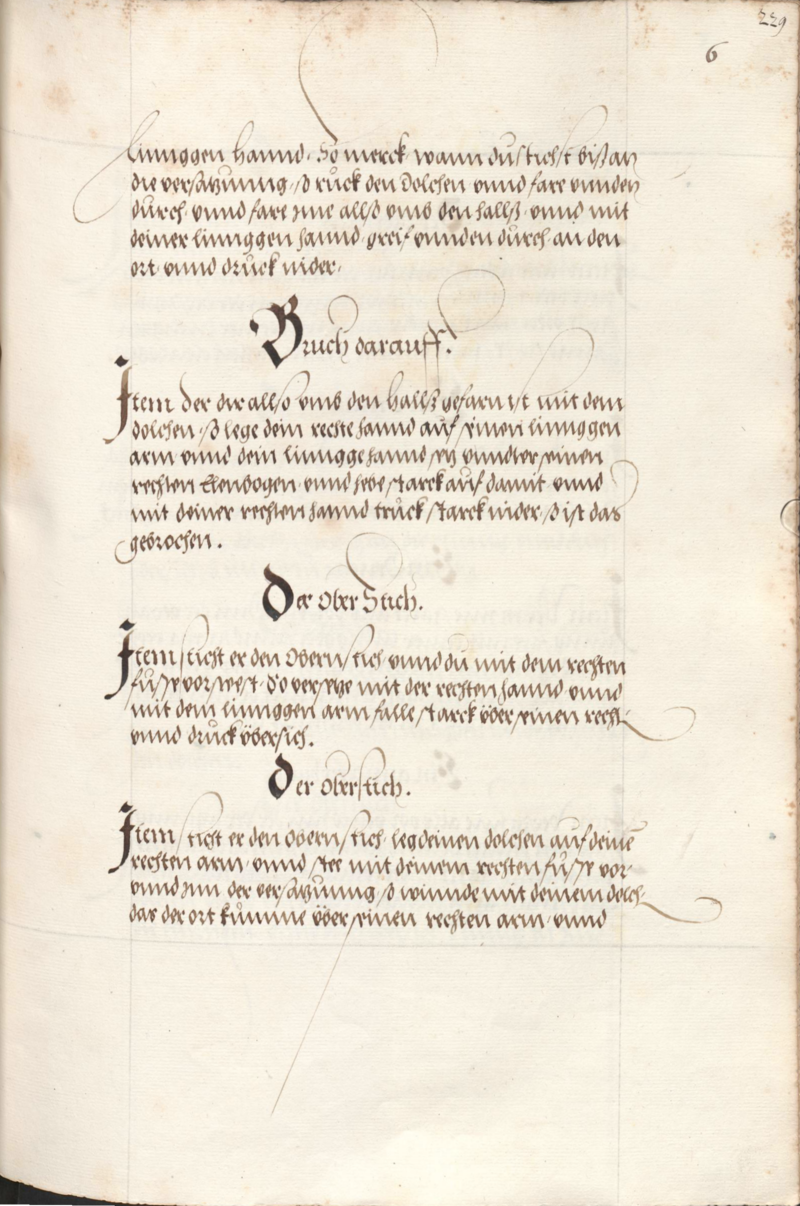 229
6
linnggen hannd. So merck wann du stichst biß an
die versatzunng, so ruck den Dolchen unnd fare unnden
durch unnd fare ime allso umb den hallß unnd mit
deiner linnggen hannd greif unnden durch an den
ort unnd druck nider.
Bruch darauff.
Item der dir allso umb den hallß gefarn ist mit dem
dolchen, so lege dein rechte hannd auf seinen linnggen
arm unnd dein lingge hannd setz unndter seinen
rechten Elenbogen unnd hebe starck auf damit unnd
mit deiner rechten hannd truck starck nider, so ist das
gebrochen.
Der Ober Stich.
Item sticht er den Obern stich unnd du mit dem rechten
fuße vor stest. So versetze mit der rechten hannd unnd
mit dem linnggen arm falle starck über seinen recht
unnd druck übersich.
Der Oberstich.
Item sticht er den Obern stich leg deinen dolchen auf deinē
rechten arm unnd stee mit deinem rechten fuße vor
unnd inn der versatzunng so winnde mit deinem dolch
das der ort kumme über seinen rechten arm unnd